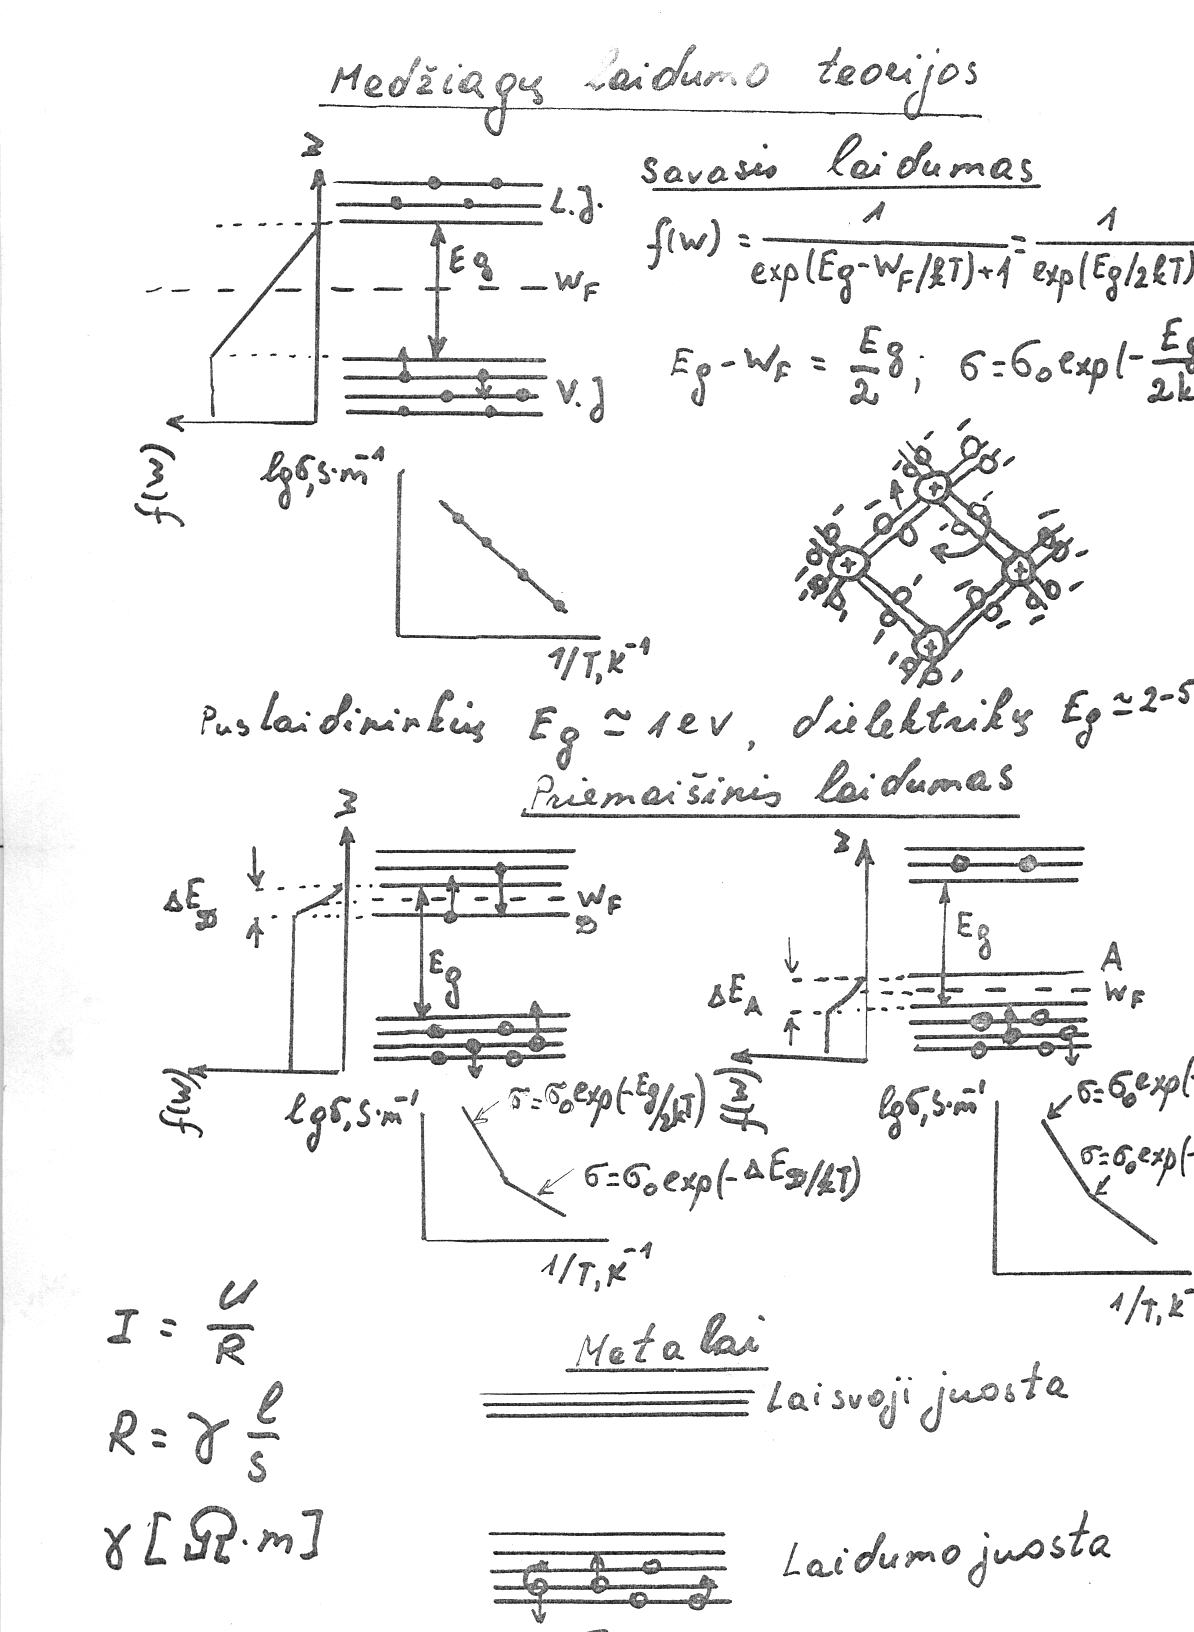 Medžiagų laidumo teorijos
W
Savasis laidumas
L.J.
f(W) = 1/exp(Eg-WF/kT)+1 = 1/exp(Eg/2kT)
Eg
WF
Eg - WF = Eg/2; σ=σ₀exp(-Eg/2k
V.J
f(W)
lgσ,S·m⁻¹
1/T,K⁻¹
Puslaidininkių Eg ≃ 1eV, dielektrikų Eg ≃ 2-5
Priemaišinis laidumas
W
W
ΔED
WF
D
Eg
Eg
A
ΔEA
WF
f(W)
f(W)
lgσ,S·m⁻¹
σ=σ₀exp(-Eg/2kT)
σ=σ₀exp(-ΔED/kT)
1/T,K⁻¹
lgσ,S·m⁻¹
σ=σ₀exp(-
σ=σ₀exp(-
1/T,K⁻
I = U/R
Metalai
Laisvoji juosta
R = γ l/s
γ [Ω·m]
Laidumo juosta